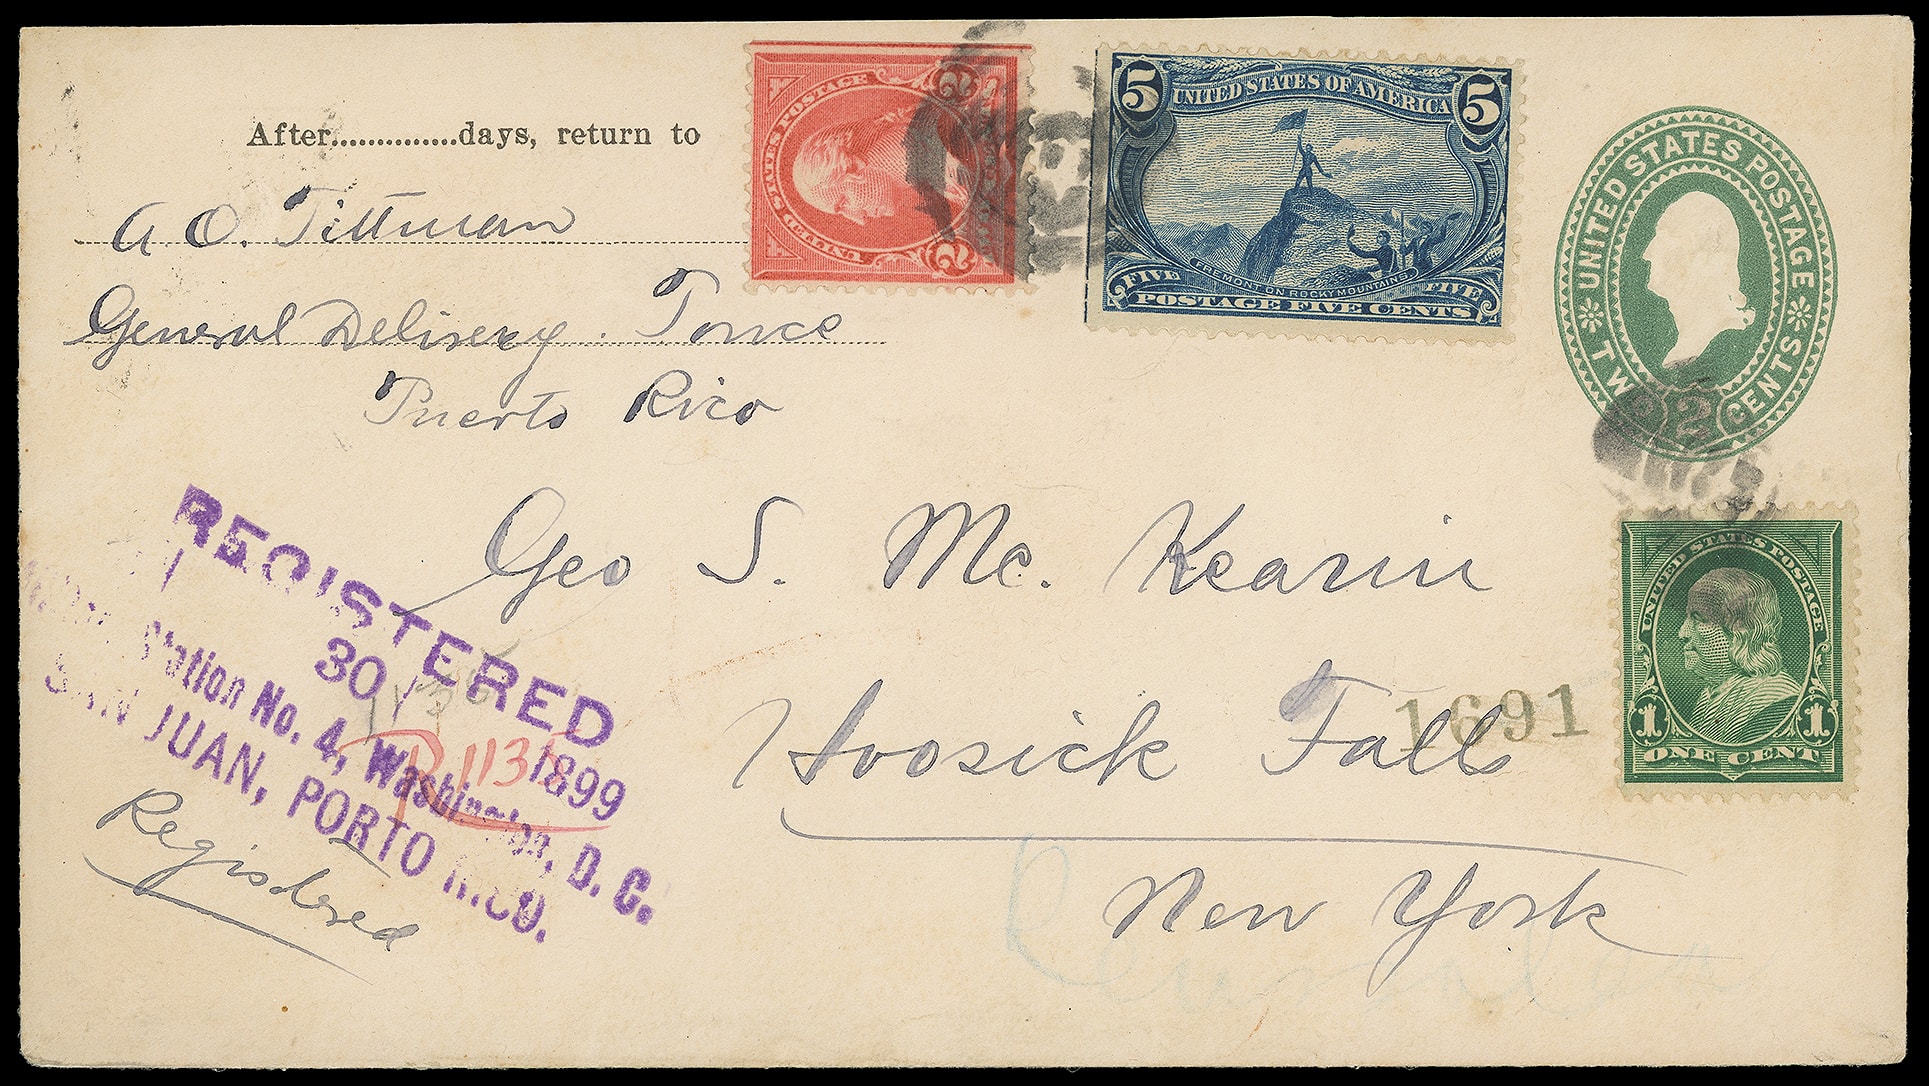 After..............days, return to
A. O. Tittman
General Delivery. Ponce
Puerto Rico
UNITED STATES POSTAGE
2 2
5 UNITED STATES OF AMERICA 5
FREMONT ON ROCKY MOUNTAINS
FIVE FIVE
POSTAGE FIVE CENTS
UNITED STATES POSTAGE
TWO 2 CENTS
Geo S. Mc. Kearin
Hoosick Falls
New York
1691
UNITED STATES POSTAGE
1 1
ONE CENT
REGISTERED
30 1899
Station No. 4, Washington, D. C.
SAN JUAN, PORTO RICO.
R 1135
Registered